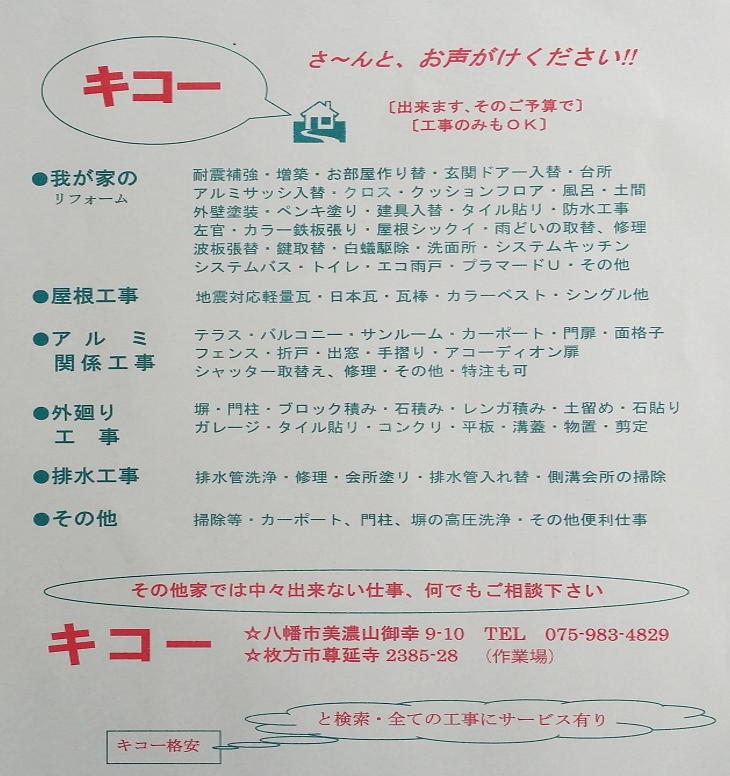 キコー
さ～んと、お声がけください!!
〔出来ます、そのご予算で〕
〔工事のみもＯＫ〕
●我が家の
リフォーム
耐震補強・増築・お部屋作り替・玄関ドアー入替・台所
アルミサッシ入替・クロス・クッションフロア・風呂・土間
外壁塗装・ペンキ塗り・建具入替・タイル貼リ・防水工事
左官・カラー鉄板張り・屋根シックイ・雨どいの取替、修理
波板張替・鍵取替・白蟻駆除・洗面所・システムキッチン
システムバス・トイレ・エコ雨戸・プラマードＵ・その他
●屋根工事
地震対応軽量瓦・日本瓦・瓦棒・カラーベスト・シングル他
●アルミ
関係工事
テラス・バルコニー・サンルーム・カーポート・門扉・面格子
フェンス・折戸・出窓・手摺り・アコーディオン扉
シャッター取替え、修理・その他・特注も可
●外廻り
工事
塀・門柱・ブロック積み・石積み・レンガ積み・土留め・石貼り
ガレージ・タイル貼リ・コンクリ・平板・溝蓋・物置・剪定
●排水工事
排水管洗浄・修理・会所塗リ・排水管入れ替・側溝会所の掃除
●その他
掃除等・カーポート、門柱、塀の高圧洗浄・その他便利仕事
その他家では中々出来ない仕事、何でもご相談下さい
キコー
☆八幡市美濃山御幸 9-10 TEL 075-983-4829
☆枚方市尊延寺 2385-28 （作業場）
と検索・全ての工事にサービス有り
キコー格安